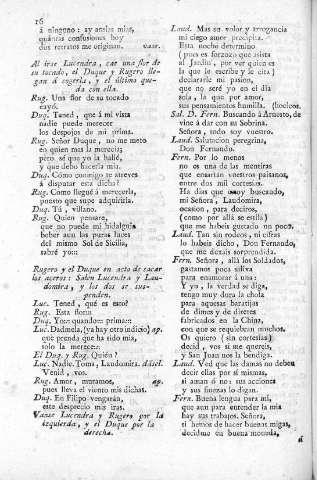 16
á ninguno: ay ansias mias,
quántas confusiones hoy
dos retratos me originan. vase.
Al irse Lucendra, cae una flor de
su tocado, el Duque y Rugero lle-
gan á cogerla, y el último que-
da con ella.
Rug. Una flor de su tocado
cayó.
Duq. Tened, que á mi vista
nadie puede merecer
los despojos de mi prima.
Rug. Señor Duque, no me meto
en quien mas la merecia;
pero sé que yo la hallé,
y que debo hacerla mia.
Duq. Cómo conmigo te atreves
á disputar esta dicha?
Rug. Como llegué á merecerla,
puesto que supe adquirirla.
Duq. Tú, villano.
Rug. Quien pensare,
que no puede mi hidalguia
beber aun las puras luces
del mismo Sol de Sicilia,
sabré yo::
Rugero y el Duque en acto de sacar
los aceros: Salen Lucendra y Lau-
domira, y los dos se sus-
penden.
Luc. Tened, qué es esto?
Rug. Esta flor::
Duq. Yo:: quando:: prima::
Luc. Dadmela, (ya hay otro indicio) ap.
que prenda que ha sido mia,
solo la merece::
El Duq. y Rug. Quién?
Luc. Nadie. Toma, Laudomira. dásel.
Venid, vos.
Rug. Amor, muramos, ap.
pues lleva el viento mis dichas.
Duq. En Filipo vengarán,
este desprecio mis iras.
Vanse Lucendra y Rugero por la
izquierda, y el Duque por la
derecha.
Laud. Mas su valor y arrogancia
mi ciego amor precipita.
Esta noche determino
(pues es forzozo que asista
al Jardin, por ver quien es
la que le escribe y le cita)
declararle mi pasion,
que no seré yo en el dia
sola, la que por amor,
sus pensamientos humilla.
Sal. D. Fern. Buscando á Arnesto, de
vine á dar con su Sobrina.
Señora, todo soy vuestro.
Laud. Salutacion peregrina,
Don Fernando.
Fern. Por lo menos
no es una de las mentiras
que ensartan vuestros paisanos,
entre dos mil cortesias.
Ha dias que ando buscando,
mi Señora, Laudomira,
ocasion, para deciros,
(como por allá se estila)
que me habeis gustado un poco.
Laud. Tan sin rodeos, ni cifras
lo habeis dicho, Don Fernando,
que me dexais sorprendida.
Fern. Señora, allá los Soldados,
gastamos poca saliva
para enamorar á una:
Y yo, la verdad se diga,
tengo muy dura la chola
para aquesas baratijas
de dimes y de diretes
fabricados en la China,
con que se requiebran muchos.
Os quiero (sin cortesias)
decid, vos si me quereis,
y San Juan nos la bendiga.
Laud. Ved que las damas no deben
decir ellas por sí mismas,
si aman ó no: sus acciones
y sus finezas lo digan.
Fern. Buena lengua para mí,
que aun para entender la mia
hay sus trabajos. Señora,
si hemos de hacer buenas migas,
decidme en buena moneda,
á